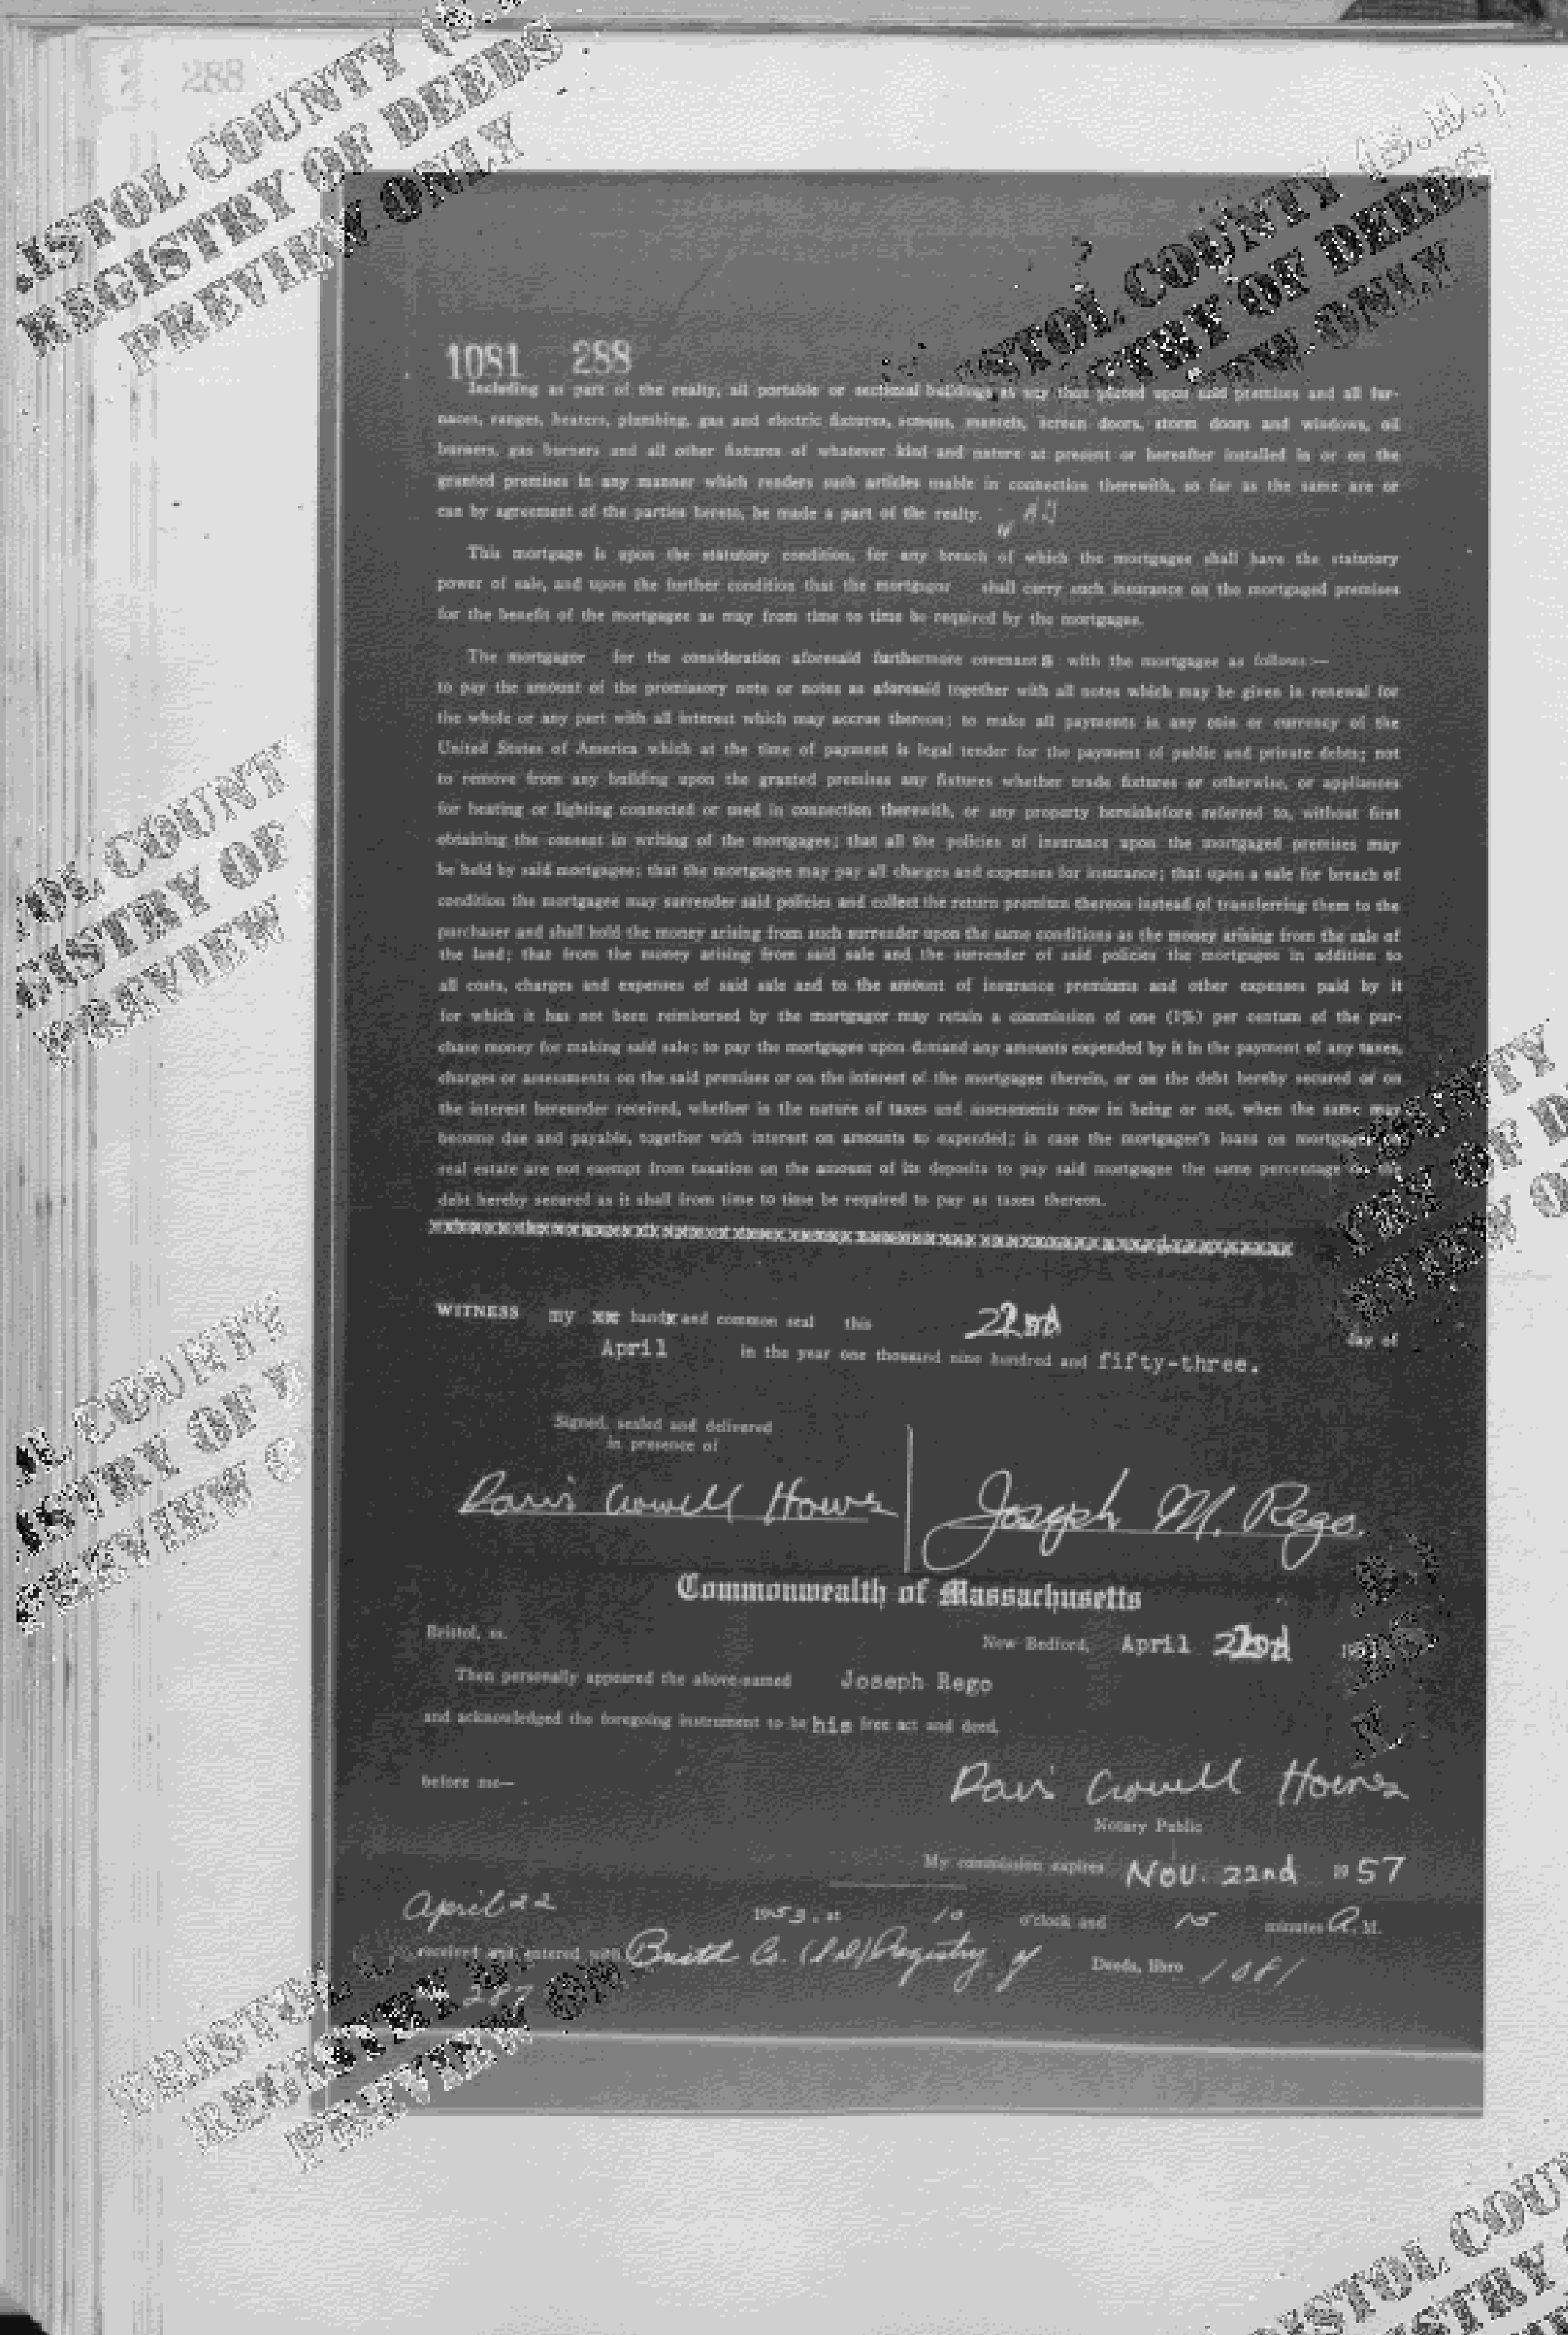 288
1081 288
Including as part of the realty, all portable or sectional buildings at any time placed upon said premises and all fur-
naces, ranges, heaters, plumbing, gas and electric fixtures, screens, mantels, screen doors, storm doors and windows, oil
burners, gas burners and all other fixtures of whatever kind and nature at present or hereafter installed in or on the
granted premises in any manner which renders such articles usable in connection therewith, so far as the same are or
can by agreement of the parties hereto, be made a part of the realty.
This mortgage is upon the statutory condition, for any breach of which the mortgagee shall have the statutory
power of sale, and upon the further condition that the mortgagor shall carry such insurance on the mortgaged premises
for the benefit of the mortgagee as may from time to time be required by the mortgagee.
The mortgagor for the consideration aforesaid furthermore covenant s with the mortgagee as follows:—
to pay the amount of the promissory note or notes as aforesaid together with all notes which may be given in renewal for
the whole or any part with all interest which may accrue thereon; to make all payments in any coin or currency of the
United States of America which at the time of payment is legal tender for the payment of public and private debts; not
to remove from any building upon the granted premises any fixtures whether trade fixtures or otherwise, or appliances
for heating or lighting connected or used in connection therewith, or any property hereinbefore referred to, without first
obtaining the consent in writing of the mortgagee; that all the policies of insurance upon the mortgaged premises may
be held by said mortgagee; that the mortgagee may pay all charges and expenses for insurance; that upon a sale for breach of
condition the mortgagee may surrender said policies and collect the return premium thereon instead of transferring them to the
purchaser and shall hold the money arising from such surrender upon the same conditions as the money arising from the sale of
the land; that from the money arising from said sale and the surrender of said policies the mortgagee in addition to
all costs, charges and expenses of said sale and to the amount of insurance premiums and other expenses paid by it
for which it has not been reimbursed by the mortgagor may retain a commission of one (1%) per centum of the pur-
chase money for making said sale; to pay the mortgagee upon demand any amounts expended by it in the payment of any taxes,
charges or assessments on the said premises or on the interest of the mortgagee therein, or on the debt hereby secured or on
the interest hereunder received, whether in the nature of taxes and assessments now in being or not, when the same may
become due and payable, together with interest on amounts so expended; in case the mortgagee's loans on mortgages of
real estate are not exempt from taxation on the amount of its deposits to pay said mortgagee the same percentage on the
debt hereby secured as it shall from time to time be required to pay as taxes thereon.
WITNESS my hand and common seal this 22nd day of
April in the year one thousand nine hundred and fifty-three.
Signed, sealed and delivered
in presence of
Davis Crowell Howes Joseph M. Rego.
Commonwealth of Massachusetts
Bristol, ss. New Bedford, April 22nd 19
Then personally appeared the above-named Joseph Rego
and acknowledged the foregoing instrument to be his free act and deed,
before me— Davis Crowell Howes
Notary Public
My commission expires Nov. 22nd 1957
April 22 1953, at 10 o'clock and 15 minutes A. M.
received and entered with Bristol Co. (S.D.) Registry of Deeds, libro 1081
287
BRISTOL COUNTY (S.D.)
REGISTRY OF DEEDS
PREVIEW ONLY